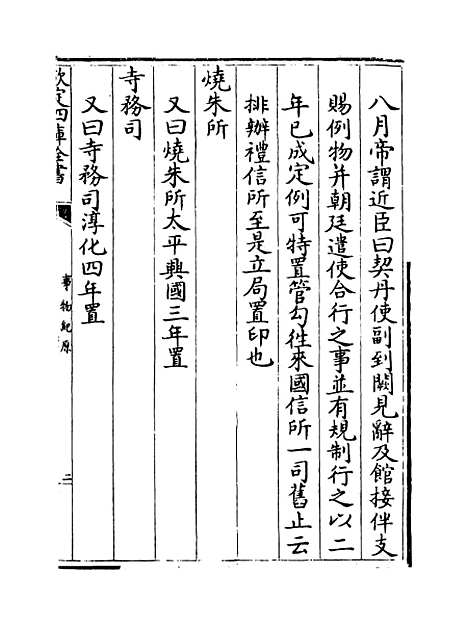 八月帝謂近臣曰契丹使副到闕見辭及館接伴支
賜例物并朝廷遣使合行之事並有規制行之以二
年已成定例可特置管勾徃來國信所一司舊止云
排辦禮信所至是立局置印也
燒朱所
又曰燒朱所太平興國三年置
寺務司
又曰寺務司淳化四年置
欽定四庫全書
事物紀原
三